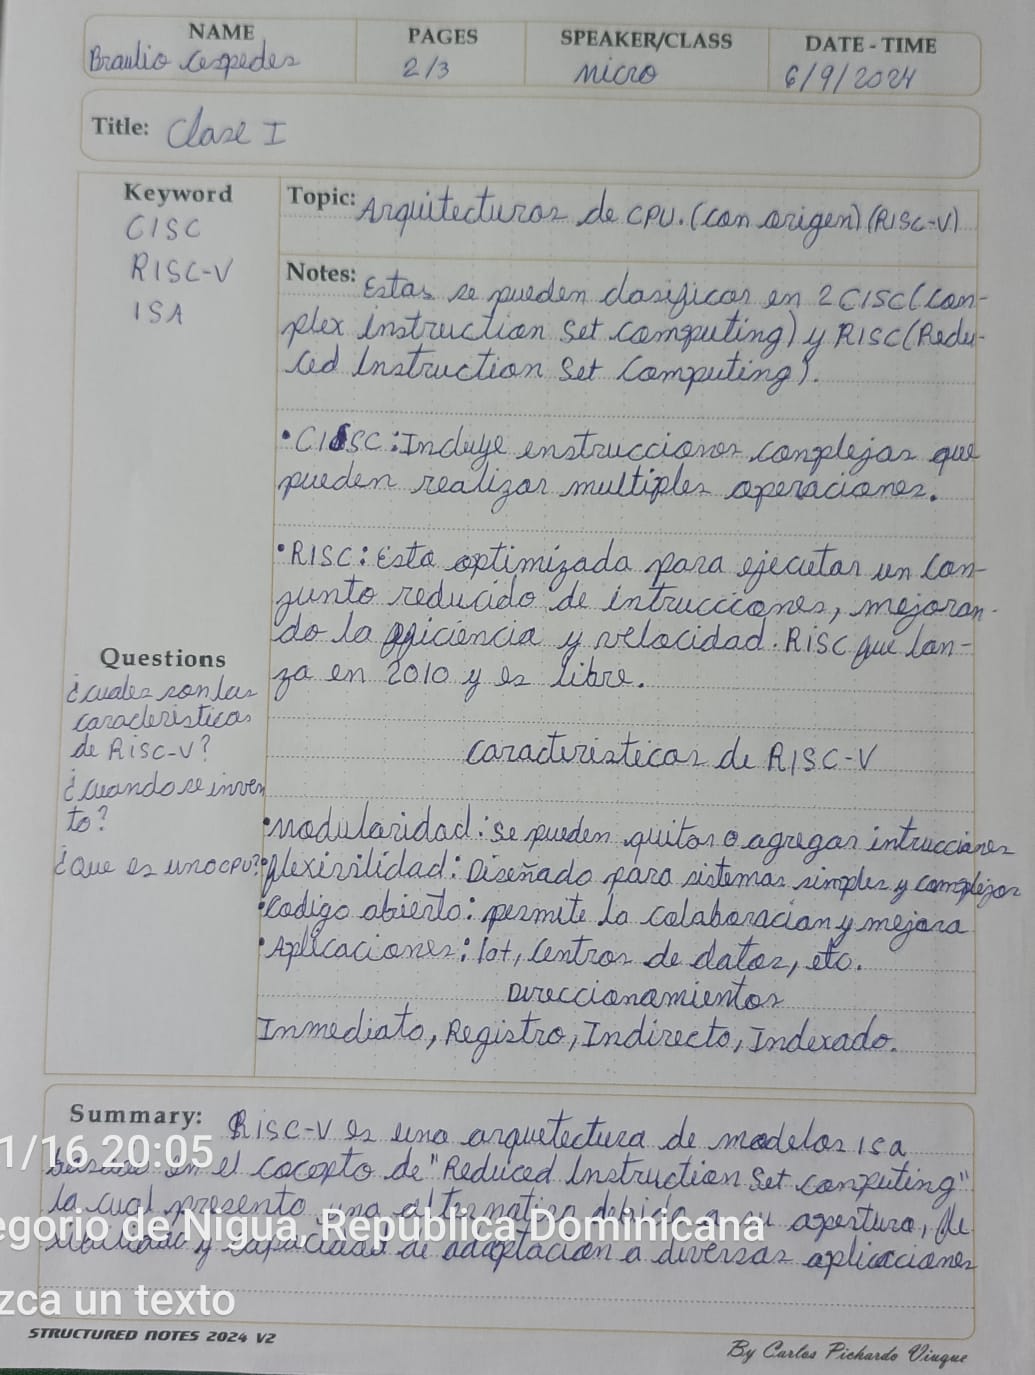 NAME PAGES SPEAKER/CLASS DATE - TIME
Braulio cespedes 2/3 Micro 6/9/2024
Title: Clase I
Keyword
CISC
RISC-V
ISA
Topic: Arquitecturas de CPU. (con origen) (RISC-V)
Notes: Estas se pueden clasificar en 2 CISC (Com-
plex Instruction Set Computing) y RISC (Redu-
ced Instruction Set Computing).
• CISC: Incluye enstrucciones complejas que
pueden realizar multiples operaciones.
• RISC: Esta optimizada para ejecutar un con-
junto reducido de intrucciones, mejoran-
do la eficiencia y velocidad. RISC que lan-
za en 2010 y es libre.
Caracteristicas de RISC-V
• Modularidad: Se pueden quitar o agregar intrucciones
• flexivilidad: Diseñado para sistemas simples y complejos
• Codigo abierto: permite la colaboracion y mejora
• Aplicaciones: Iot, Centros de datos, etc.
Direccionamientos
Inmediato, Registro, Indirecto, Indexado.
Questions
¿cuales son las
caracteristicas
de RISC-V?
¿cuando se inven
to?
¿Que es uno CPU?
Summary: RISC-V es una arquetectura de modelos ISA
en el cocepto de "Reduced Instruction Set Computing"
la cual presento una alternativa debido a su apertura, fle
y capacidad de adaptacion a diversas aplicaciones
1/16 20:05
egorio de Nigua, República Dominicana
zca un texto
STRUCTURED NOTES 2024 V2
By Carlos Pichardo Viuque